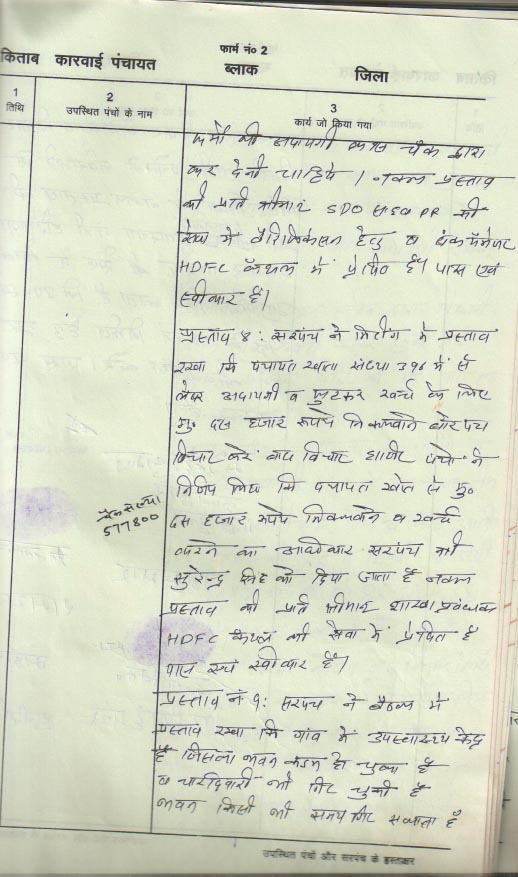 फार्म नं० 2
किताब कारवाई पंचायत ब्लाक जिला
1 2 3
तिथि उपस्थित पंचों के नाम कार्य जो किया गया
फर्मो की अदायगी क्रास चैक द्वारा
कर देनी चाहिये । नकल प्रस्ताव
की प्रति श्रीमान SDO PR की
सेवा में वैरिफिकेशन हेतु व बैंक मैनेजर
HDFC कैथल में प्रेषित है। पास एवं
स्वीकार है।
प्रस्ताव 8: सरपंच ने मिटींग में प्रस्ताव
रखा कि पंचायत खाता संख्या में से
लेबर अदायगी व फुटकर खर्च के लिए
मु० दस हजार रूपये निकलवाने बारे पंच
विचार करें बाद विचार पंचो ने
निर्णय लिया कि पंचायत खाते से मु०
चैक संख्या
577800
दस हजार रूपये निकलवाने व खर्च
करने का अधिकार सरपंच श्री
सुरेन्द्र सिंह को दिया जाता है नकल
प्रस्ताव की प्रति श्रीमान शाखा प्रबंधक
HDFC कैथल की सेवा में प्रेषित है
पास एवं स्वीकार है।
प्रस्ताव नं 9: सरपंच ने बैठक में
प्रस्ताव रखा कि गांव में उपस्वास्थ्य केन्द्र
है जिसका भवन कंडम हो चुका है
व चारदिवारी भी गिर चुकी है
भवन किसी भी समय गिर सकता है
उपस्थित पंचों और सरपंच के हस्ताक्षर